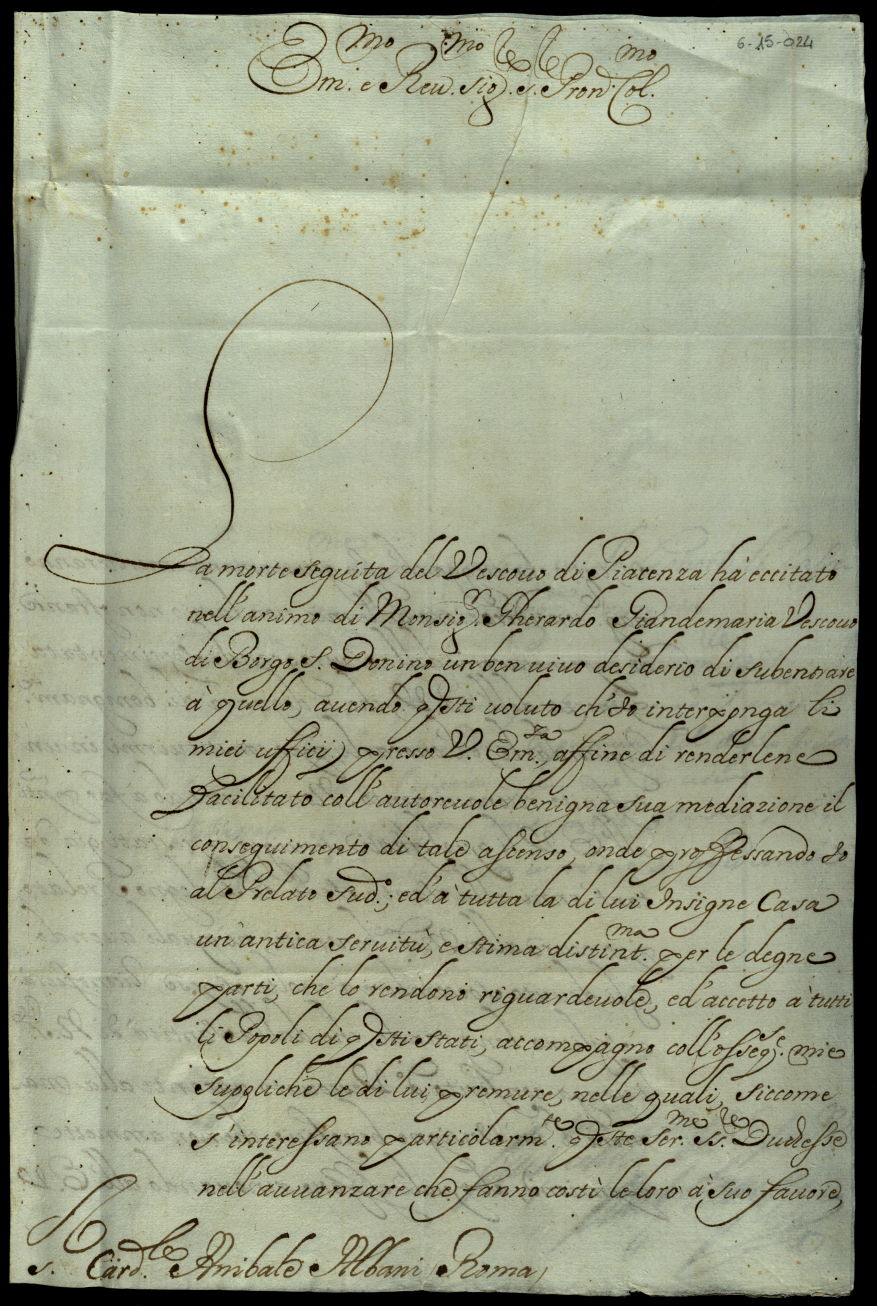 6-15-024
Em.mo e Reu.mo sig.re s. Pron Col.mo
La morte seguita del Vescouo di Piacenza hà eccitato
nell'animo di Monsig.r Gherardo Giandemaria Vescouo
di Borgo S. Donino un ben uiuo desiderio di subentrare
à quello, auendo qsti voluto ch'io interponga li
miei ufficij presso V. Em.za affine di renderlene
facilitato coll'autoreuole benigna sua mediazione il
conseguimento di tale ascenso, onde professando io
al Prelato sud.o; ed'à tutta la di lui Insigne Casa
un'antica seruitù, e stima distint.ma per le degne
parti, che lo rendono riguardeuole, ed'accetto à tutti
li Popoli di qsti stati, accompagno coll'osseq.e mie
suppliche le di lui premure, nelle quali, siccome
s'interessano particolarm.te qste Ser.me SS.re Duchesse
nell'auuanzare che fanno costì le loro à suo fauore,
s. Card.le Anibale Albani Roma